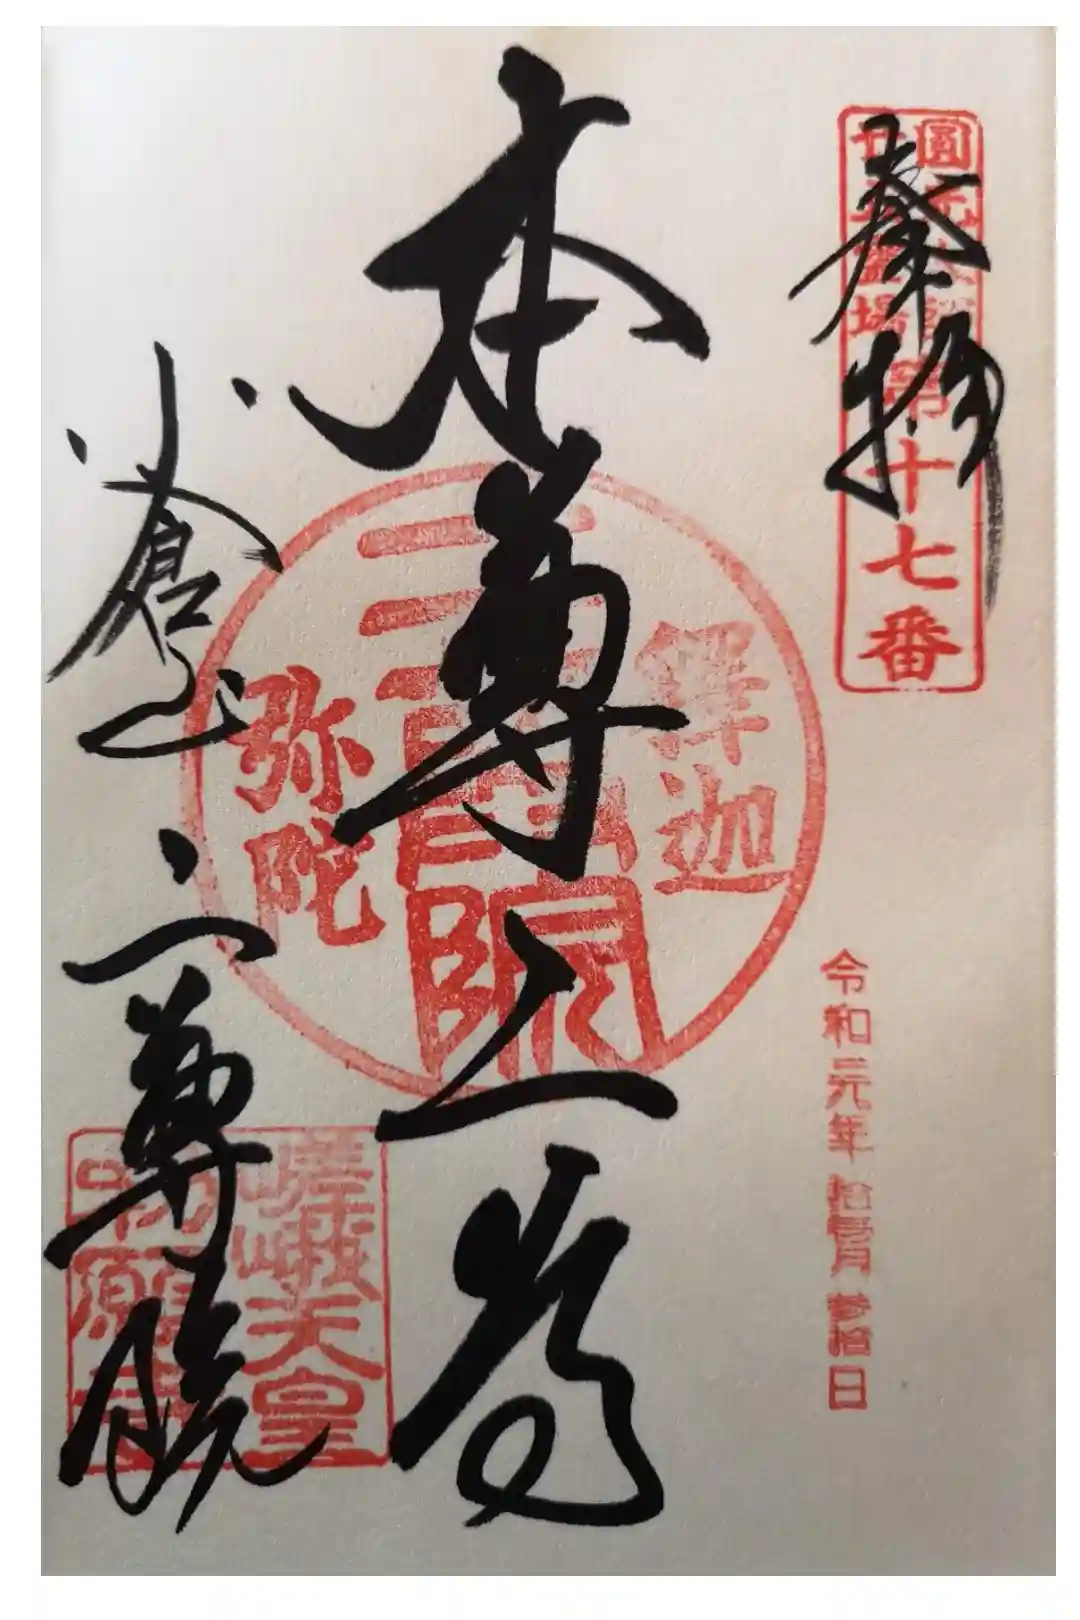 奉拝
圓光大師
廿五霊場
第十七番
本尊二尊
釋迦
弥陀
令和元年拾壱月参拾日
小倉山
二尊院
嵯峨天皇